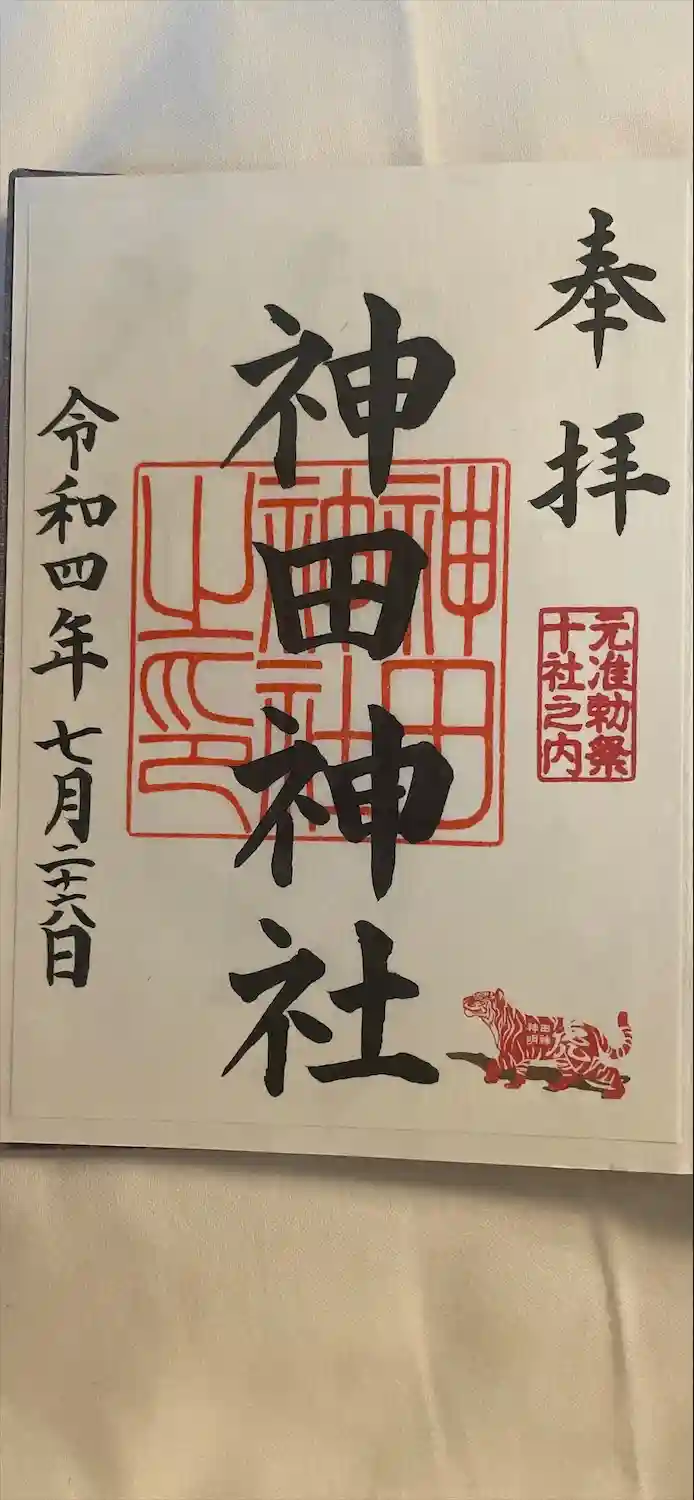 奉拝
元准勅祭
十社之内
神田神社
神田
神社
之印
令和四年七月二十六日
神田
明神
虎